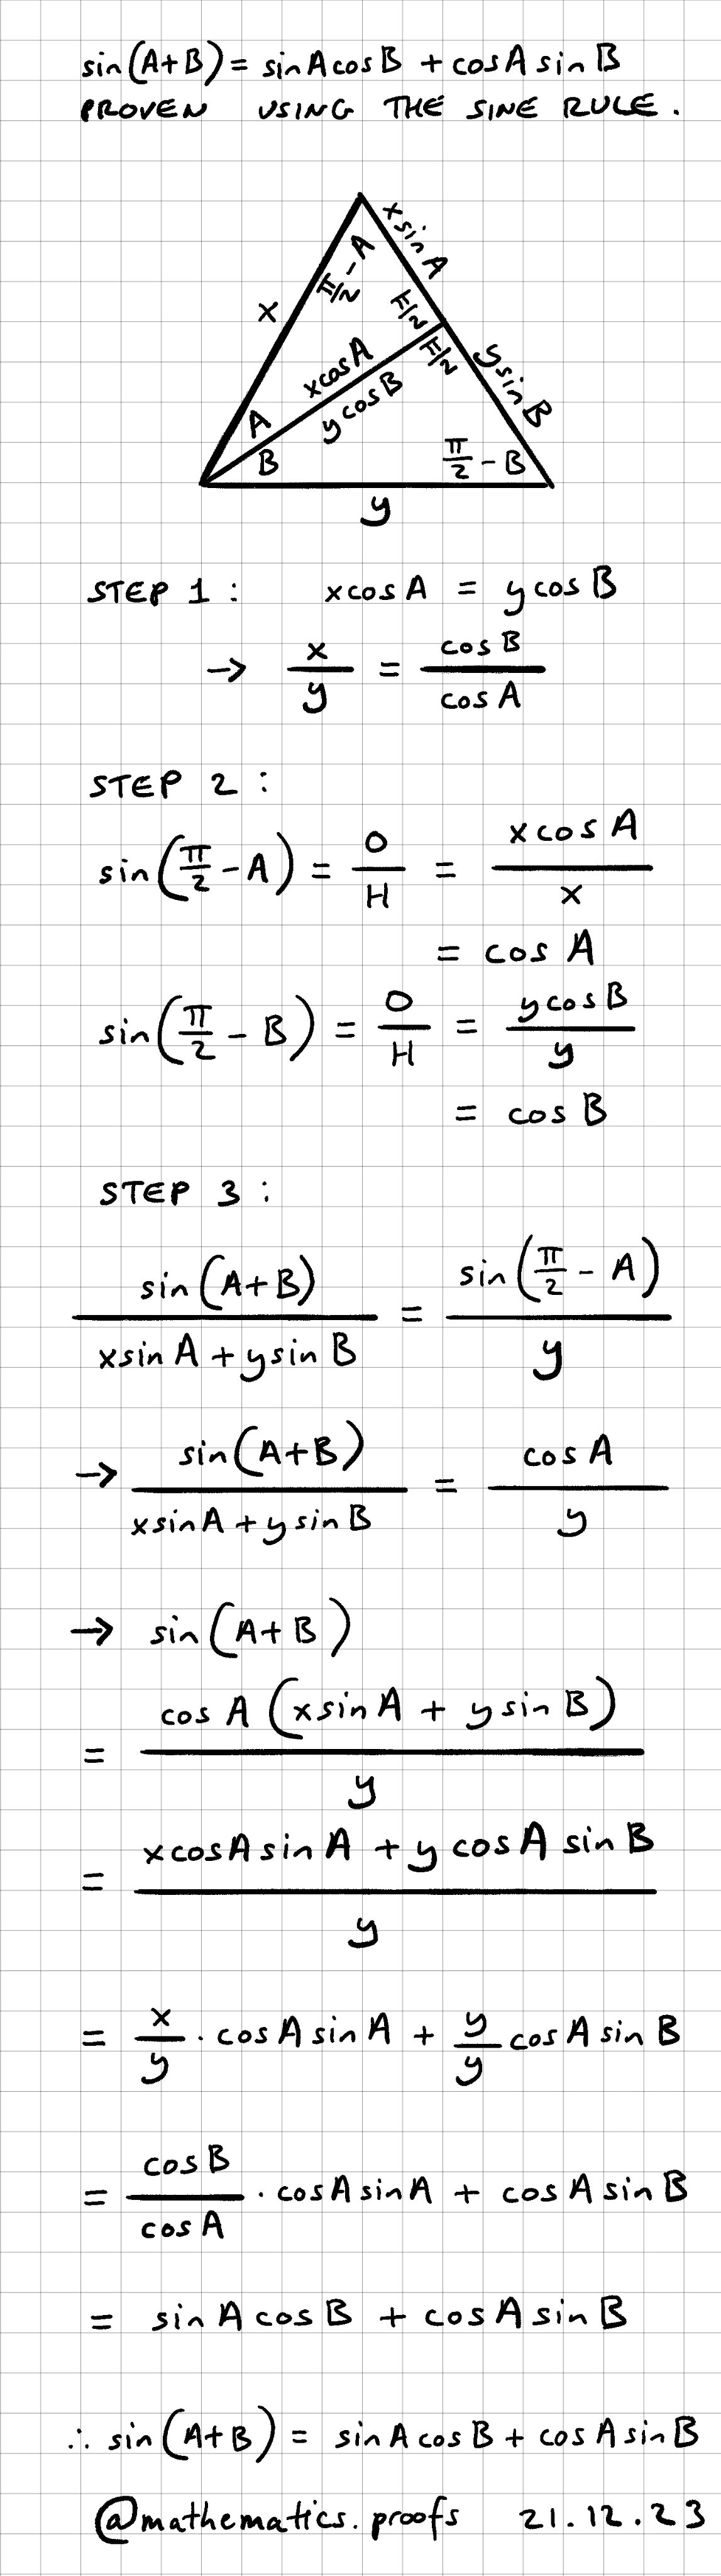 sin(A+B) = sinAcosB + cosA sinB
PROVEN USING THE SINE RULE.
x sinA
π/2 - A
x
π/2
π/2
xcosA
ysinB
ycosB
A
B
π/2 - B
y
STEP 1 : xcosA = ycosB
→ x/y = cosB/cosA
STEP 2 :
sin(π/2 - A) = O/H = xcosA/x
= cosA
sin(π/2 - B) = O/H = ycosB/y
= cosB
STEP 3 :
sin(A+B)/(xsinA + ysinB) = sin(π/2 - A)/y
→ sin(A+B)/(xsinA + ysinB) = cosA/y
→ sin(A+B)
= cosA(xsinA + ysinB)/y
= (xcosAsinA + ycosAsinB)/y
= x/y · cosAsinA + y/y cosAsinB
= cosB/cosA · cosAsinA + cosAsinB
= sinAcosB + cosAsinB
∴ sin(A+B) = sinAcosB + cosAsinB
@mathematics.proofs 21.12.23